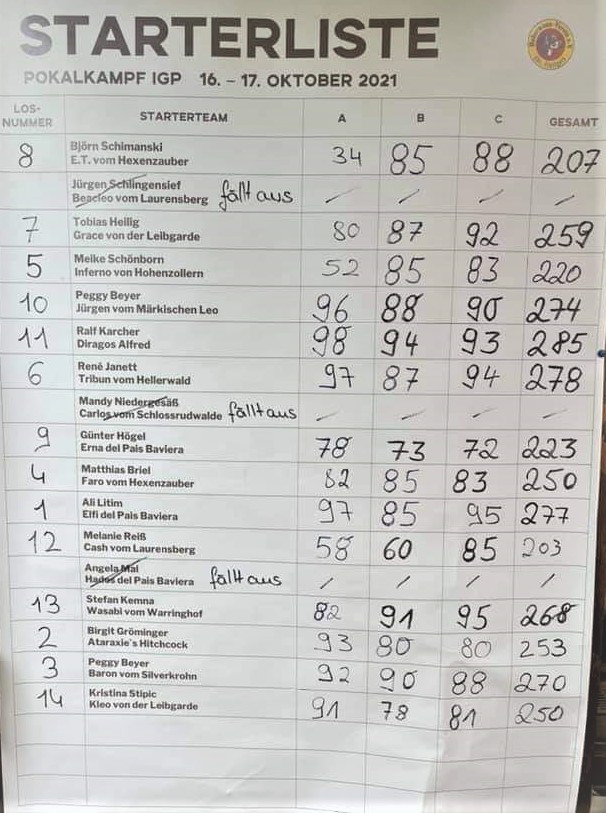 STARTERLISTE
POKALKAMPF IGP 16. – 17. OKTOBER 2021
LOS-NUMMER STARTERTEAM A B C GESAMT
8 Björn Schimanski 34 85 88 207
E.T. vom Hexenzauber
Jürgen Schlingensief fällt aus / / / /
Beacleo vom Laurensberg
7 Tobias Heilig 80 87 92 259
Grace von der Leibgarde
5 Meike Schönborn 52 85 83 220
Inferno von Hohenzollern
10 Peggy Beyer 96 88 90 274
Jürgen vom Märkischen Leo
11 Ralf Karcher 98 94 93 285
Diragos Alfred
6 René Janett 97 87 94 278
Tribun vom Hellerwald
Mandy Niedergesäß fällt aus / / / /
Carlos vom Schlossrudwalde
9 Günter Högel 78 73 72 223
Erna del Pais Baviera
4 Matthias Briel 82 85 83 250
Faro vom Hexenzauber
1 Ali Litim 97 85 95 277
Elfi del Pais Baviera
12 Melanie Reiß 58 60 85 203
Cash vom Laurensberg
Angela Mai fällt aus / / / /
Hades del Pais Baviera
13 Stefan Kemna 82 91 95 268
Wasabi vom Warringhof
2 Birgit Gröminger 93 80 80 253
Ataraxie's Hitchcock
3 Peggy Beyer 92 90 88 270
Baron vom Silverkrohn
14 Kristina Stipic 91 78 81 250
Kleo von der Leibgarde